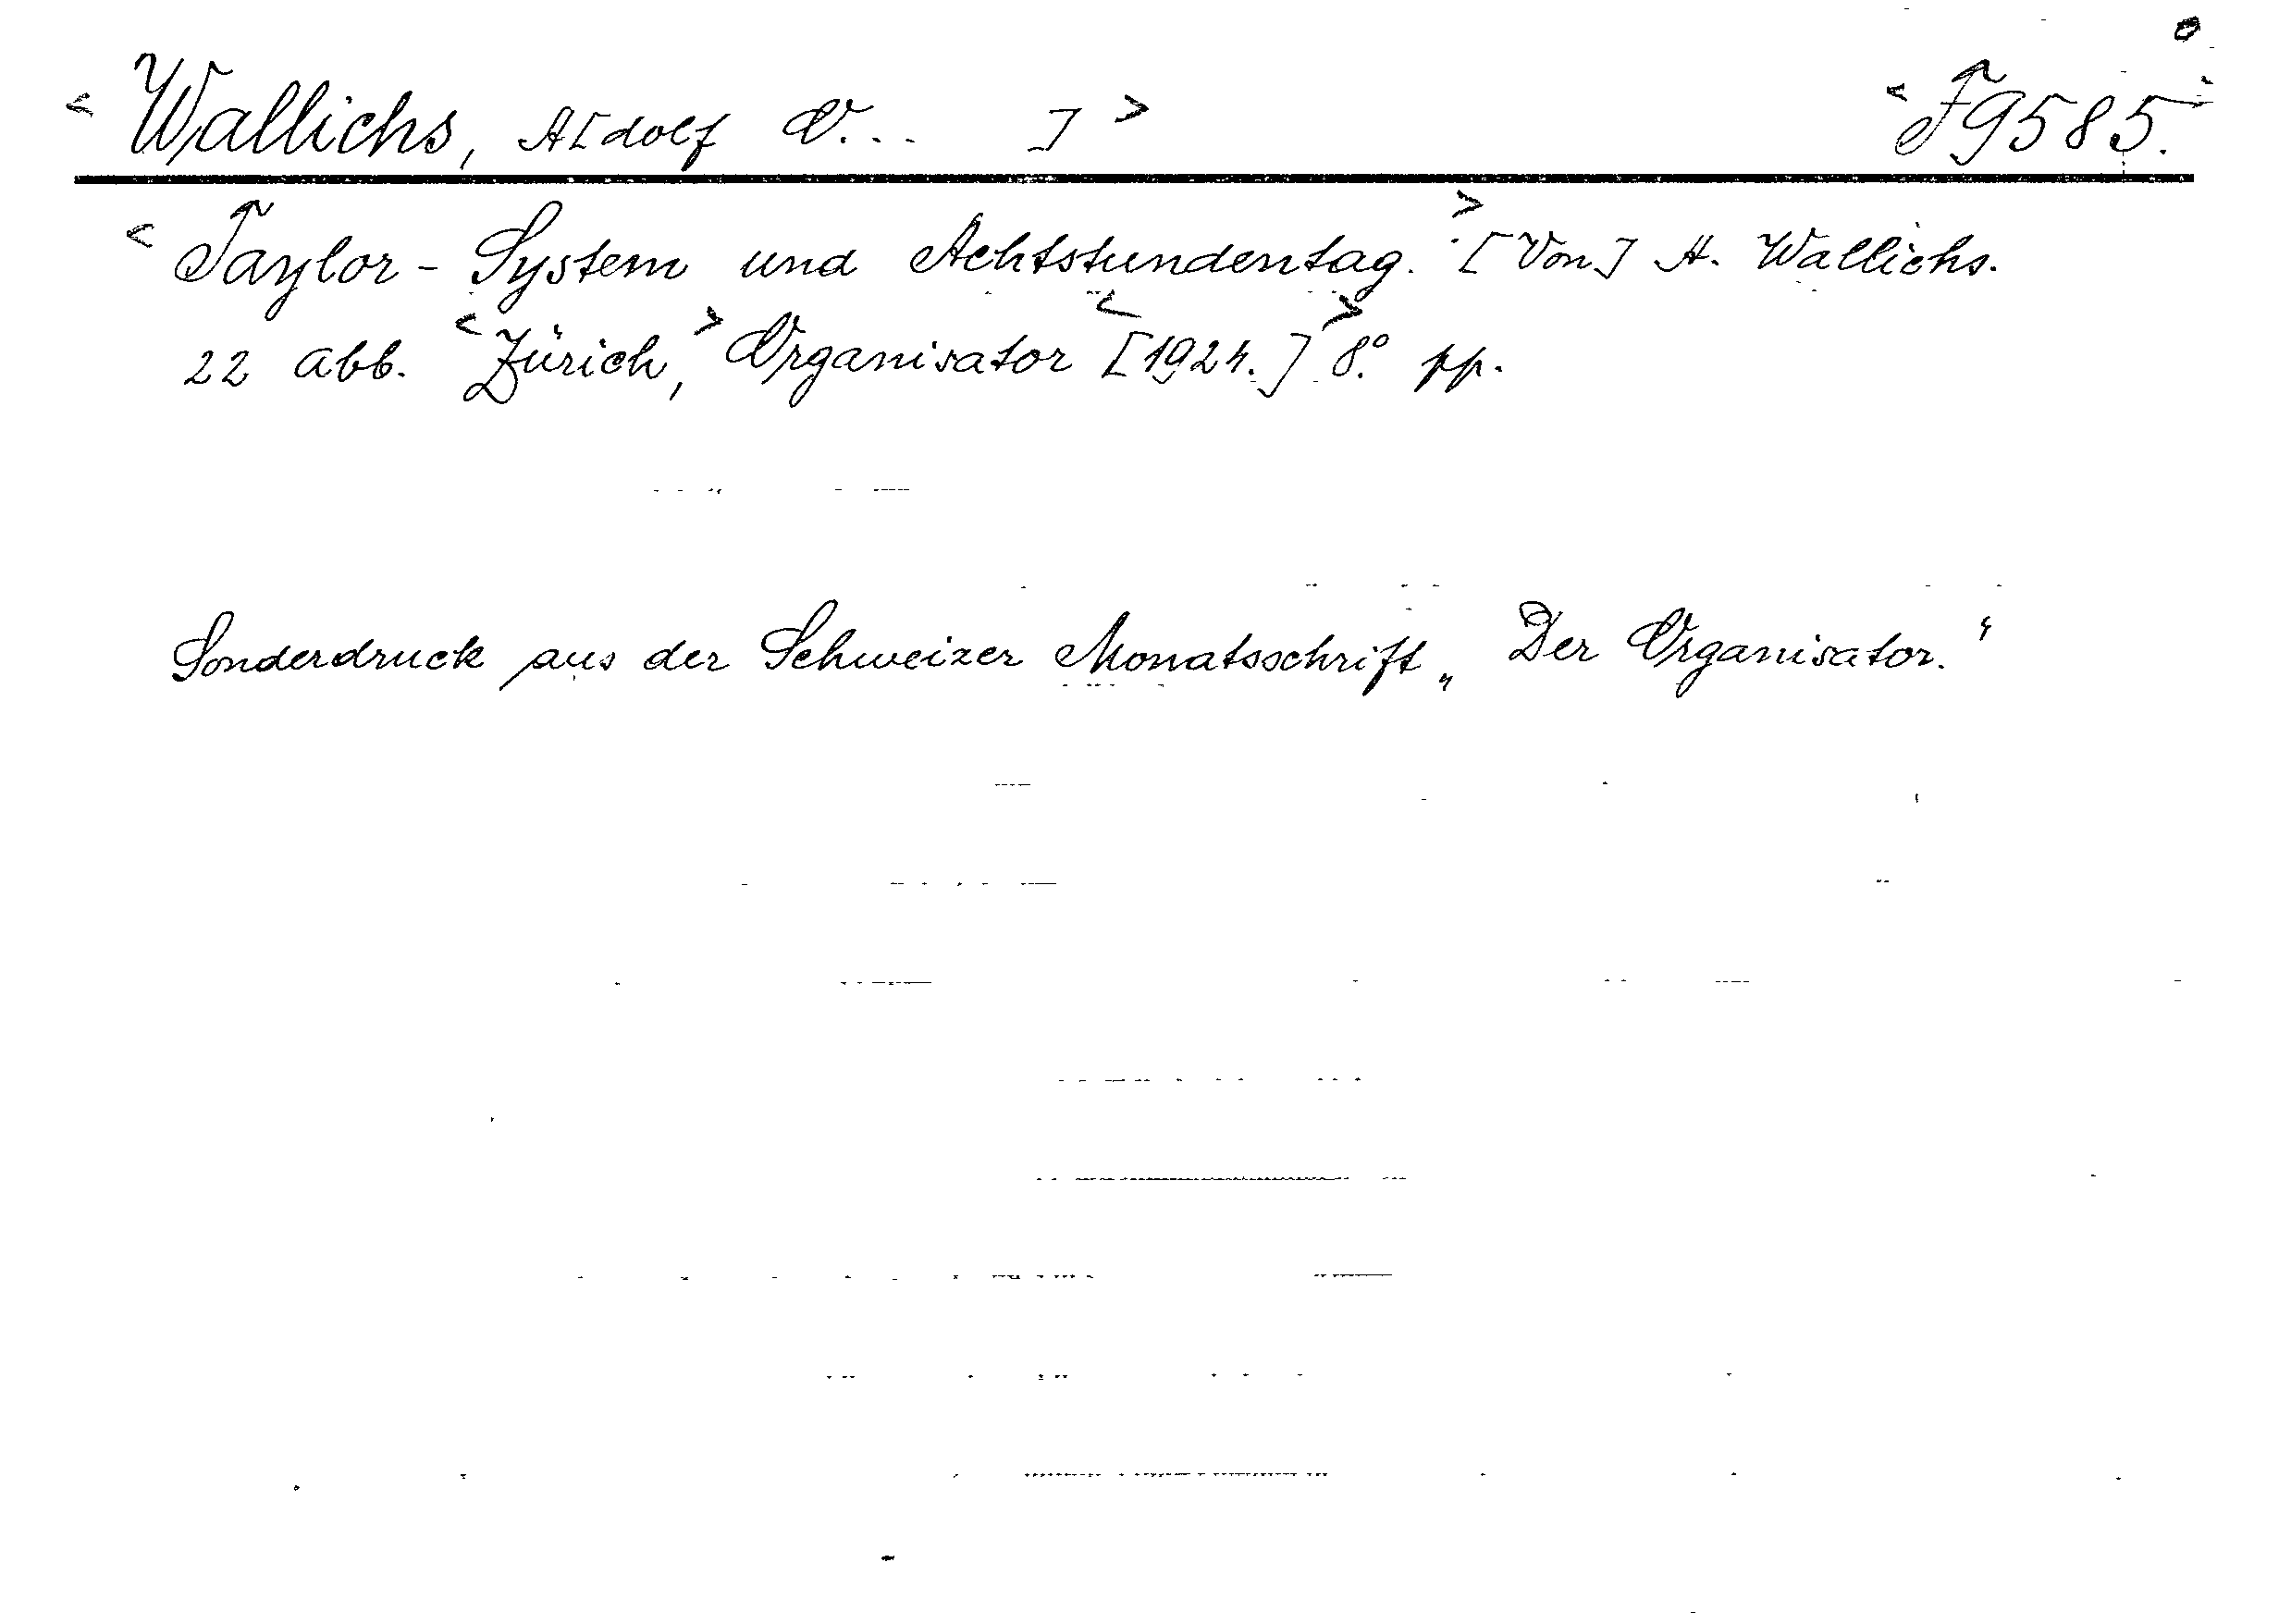 < Wallichs, A[dolf O... ] > < F9585.
< Taylor - System und Achtstundentag. > [Von] A. Wallichs.
22 Abb. < Zürich, > Organisator < [1924.] > 8.° pp.
Sonderdruck aus der Schweizer Monatsschrift „Der Organisator.“